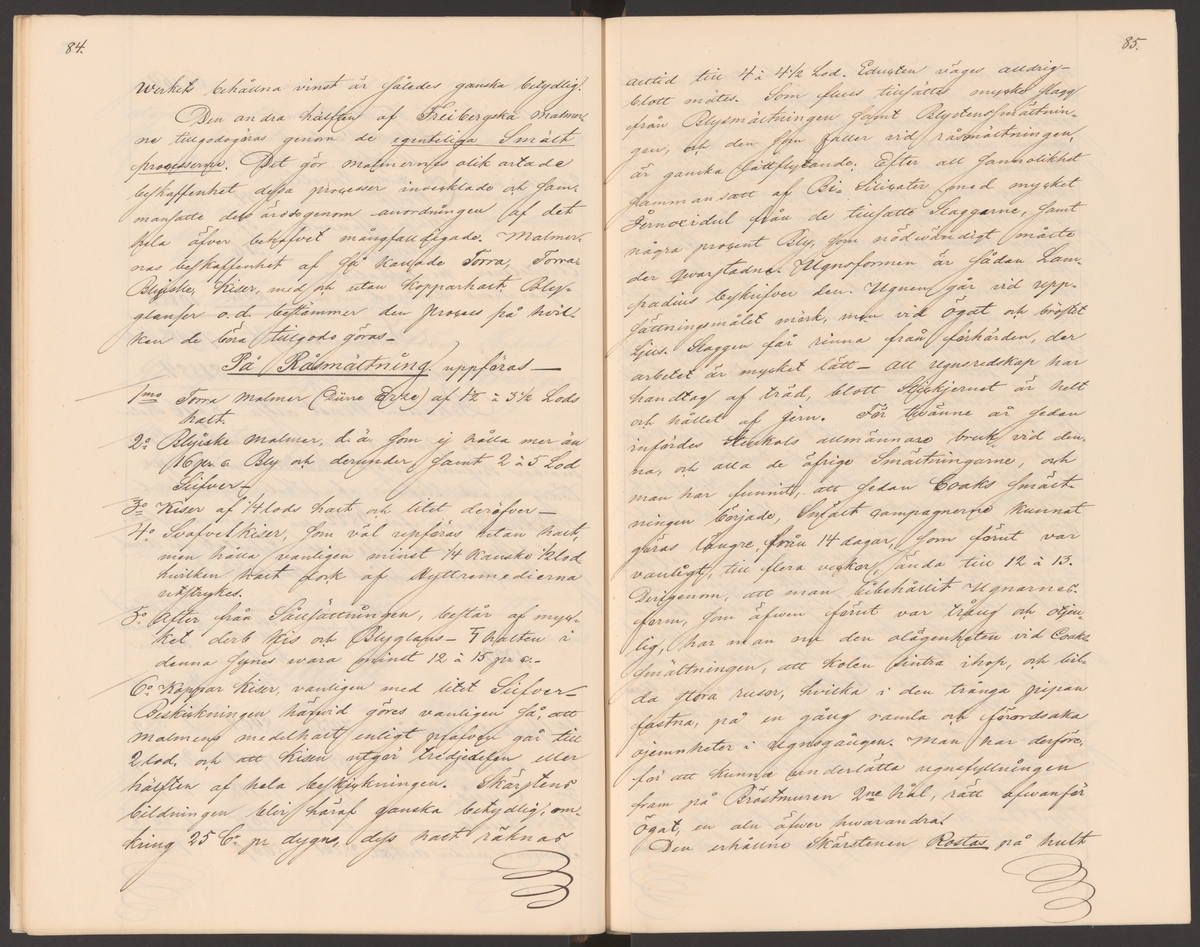 84.
Werkets behållna vinst är således ganska betydlig.
Den andra hälften af Freibergska Malmer-
ne tillgodogöras genom de egenteliga Smält
processerna. Det gör malmernes olik artade
beskaffenhet dessa processer invecklade och sam-
mansatte dess genom anordningen af det
hela öfver behofvet mångfalldigade. Malmer-
nas beskaffenhet af så kallade Torra, Torra
Blyiske, Kiser, med och utan Kopparhalt, Bly-
glanser o.d. bestämmer den process på hvil-
ken de böra tillgodogöras—
På Råsmältning uppföras—
1mo Torra Malmer (Dürre Erze) af 1½ à 3½ Lods
halt.
2o Blyiske Malmer, d.ä. som ej hålla mer än
16 pr. c. Bly och derunder samt 2 à 5 Lod
Silfver—
3o Kiser af ¼ lods halt och litet deröfver—
4o Svafvelkiser, som väl upföras utan halt,
men hålla vanligen minst ¼ kanske ½ lod
hvilken halt dock af Hyttremedierna
utstrykes.
5o After från Sållsättningen, består af myc-
ket derb Kis och Blyglans— halten i
denna synes wara minst 12 à 15 pr c.
6o Koppar Kiser, vanligen med litet Silfver—
Beskickningen härvid göres vanligen så, att
malmens medelhalt enligt profven går till
2 lod, och att Kisen utgör tridjedelen eller
hälften af hela beskickningen. Skärstens
bildningen blir häraf ganska betydlig, om-
kring 25 Co pr dygn, dess halt räknas
85.
alltid till 4 à 4½ Lod. Edukten väges alldrig—
blott mätes. Som fluss tillsättes mycke slagg
från Blysmältningen samt Blystenssmältnin-
gen, och den som faller vid råsmältningen,
är ganska lättflytande. Efter all sannolikhet
sammansatt af Bi- Silicater med mycket
Jernoxidul från de tillsatte Slaggarne, samt
några procent Bly, som nödwändigt måste
der qvarstadna. Ugnsformen är sådan Lam-
padius beskrifver den. Ugnen går vid upp-
sättningsmålet mörk, men vid ögat och bröstet
Ljus. Slaggen får rinna från förhärden, der
arbetet är mycket lätt— All Ugnsredskap har
handtag af träd, blott Stickjernet är helt
och hållet af Jern. För tvänne år sedan
infördes Stenkols allmännare bruk vid den-
na, och alla de öfrige Smältningarne, och
man har funnit, att sedan Coaks smält-
ningen började, Smält campagnerne kunnat
göras längre, från 14 dagar, som förut var
vanligt, till flera veckor, ända till 12 à 13.
Derigenom, att man bibehållit Ugnarnes
form, som äfwen förut var trång och otjen-
lig, har man nu den olägenheten vid Coaks
smältningen, att kolen sintra ihop, och bil-
da stora rusor, hvilka i den trånga pipan
fastna, på en gång ramla och förordsaka
ojemnheter i Ugnsgången. Man har derföre,
för att kunna underlätta ugnsfyllningen
fram på Bröstmuren 2ne hål, rätt ofwanför
ögat, en aln öfwer hwarandra.
Den erhållne Skärstenen Rostas på hullt